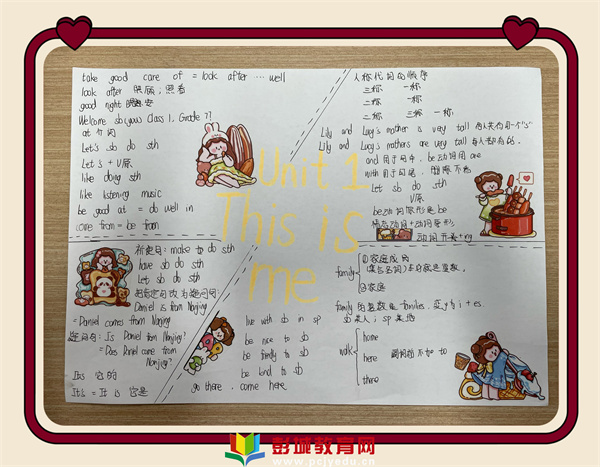 take good care of = look after … well
look after 照顾；照看
good right 晚安
Welcome sb (you) Class 1, Grade 7!
at 介词
Let's sb do sth
Let's + V原
like doing sth
like listening music
be good at = do well in
come from = be from
祈使句: make sb do sth
have sb do sth
Let sb do sth
把肯定句改为疑问句:
Daniel is from Nanjing
= Daniel comes from Nanjing
疑问句: Is Daniel from Nanjing?
= Does Daniel come from Nanjing?
Its 它的
It's = It is 它是
Unit 1
This is
me
live with sb in sp
be nice to sb
be friendly to sb
be kind to sb
go there . come here
人称代词的顺序
三称 一称
二称 一称
二称 三称 一称
Lily and Lucy's mother is very tall 两人共有用一个"s"
Lily and Lucy's mothers are very tall
and 用于句中, be动词用are
with 用于句尾
Let sb do sth
V原
be动词原形是 be
情态动词+动词原形
family
①家庭成员
(集合名词)
②家庭
family 的复数是 families. 变y为i + es.
sb 某人; sp 某地
walk
home
here
there
副词前不加 to
彭城教育网
www.pcjyedu.cn